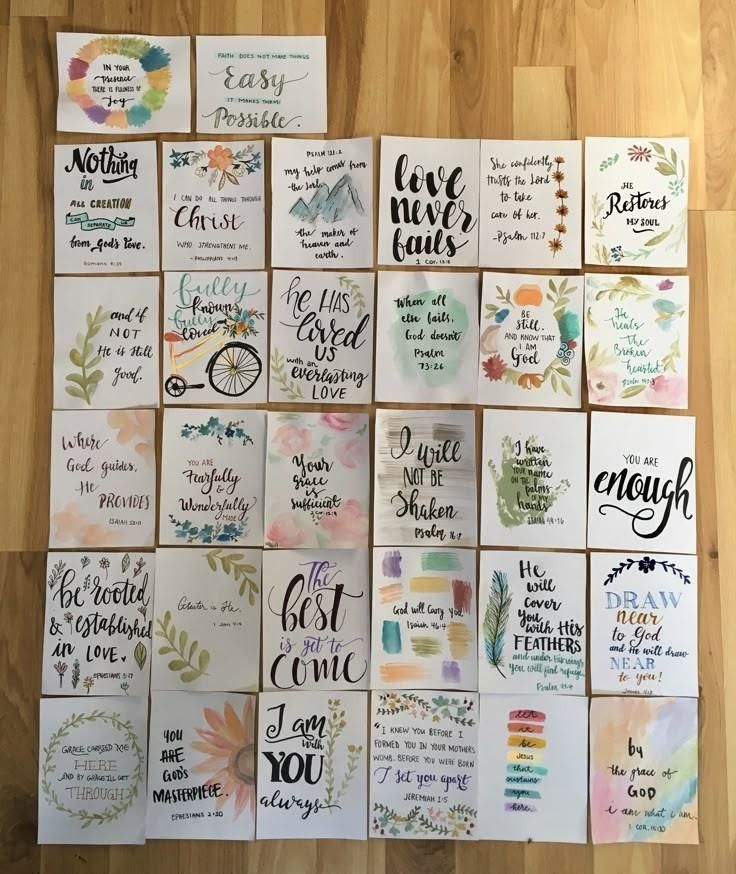 IN YOUR
presence
THERE IS FULLNESS OF
Joy
FAITH DOES NOT MAKE THINGS
Easy
IT MAKES THEM
Possible.
Nothing
in
ALL CREATION
CAN SEPARATE US
from God's love.
Romans 8:39
I CAN DO ALL THINGS THROUGH
Christ
WHO STRENGTHENS ME.
- PHILIPPIANS 4:13
PSALM 121:2
my help comes from
the Lord,
the maker of
heaven and
earth.
love
never
fails
1 Cor. 13:8
She confidently
trusts the Lord
to take
care of her.
-Psalm 112:7
HE
Restores
MY SOUL
and if
NOT
He is still
good.
fully
known
fully
loved
He HAS
loved
US
with an
everlasting
LOVE
When all
else fails,
God doesn't
Psalm
73:26
BE
Still.
AND KNOW THAT
I AM
God
He
heals
The
Broken
hearted.
Psalm 147:3
Where
God guides,
He
PROVIDES
ISAIAH 58:11
YOU ARE
Fearfully
&
Wonderfully
MADE
Your
grace
is
sufficient
2 Cor 12:9
I Will
NOT BE
Shaken
Psalm 16:7
I have
written
YOUR NAME
ON THE
palms
OF MY
hands
ISAIAH 49:16
YOU ARE
enough
be rooted
& established
in LOVE.
EPHESIANS 3:17
Greater is He.
1 John 4:4
The
best
is yet to
COME
God will carry you
Isaiah 46:4
He
will
cover
you
with His
FEATHERS
and under his wings
you will find refuge.
Psalm 91:4
DRAW
near
to God
and He will draw
NEAR
to you!
James 4:8
GRACE CARRIED ME
HERE
AND BY GRACE I'LL GET
THROUGH
YOU
ARE
GOD'S
MASTERPIECE.
EPHESIANS 2:10
I am
with
YOU
always.
"I KNEW YOU BEFORE I
FORMED YOU IN YOUR MOTHERS
WOMB. BEFORE YOU WERE BORN
I set you apart"
JEREMIAH 1:5
let
it
be
JESUS
that
sustains
you
here.
by
the grace of
GOD
i am what i am.
1 COR. 15:10